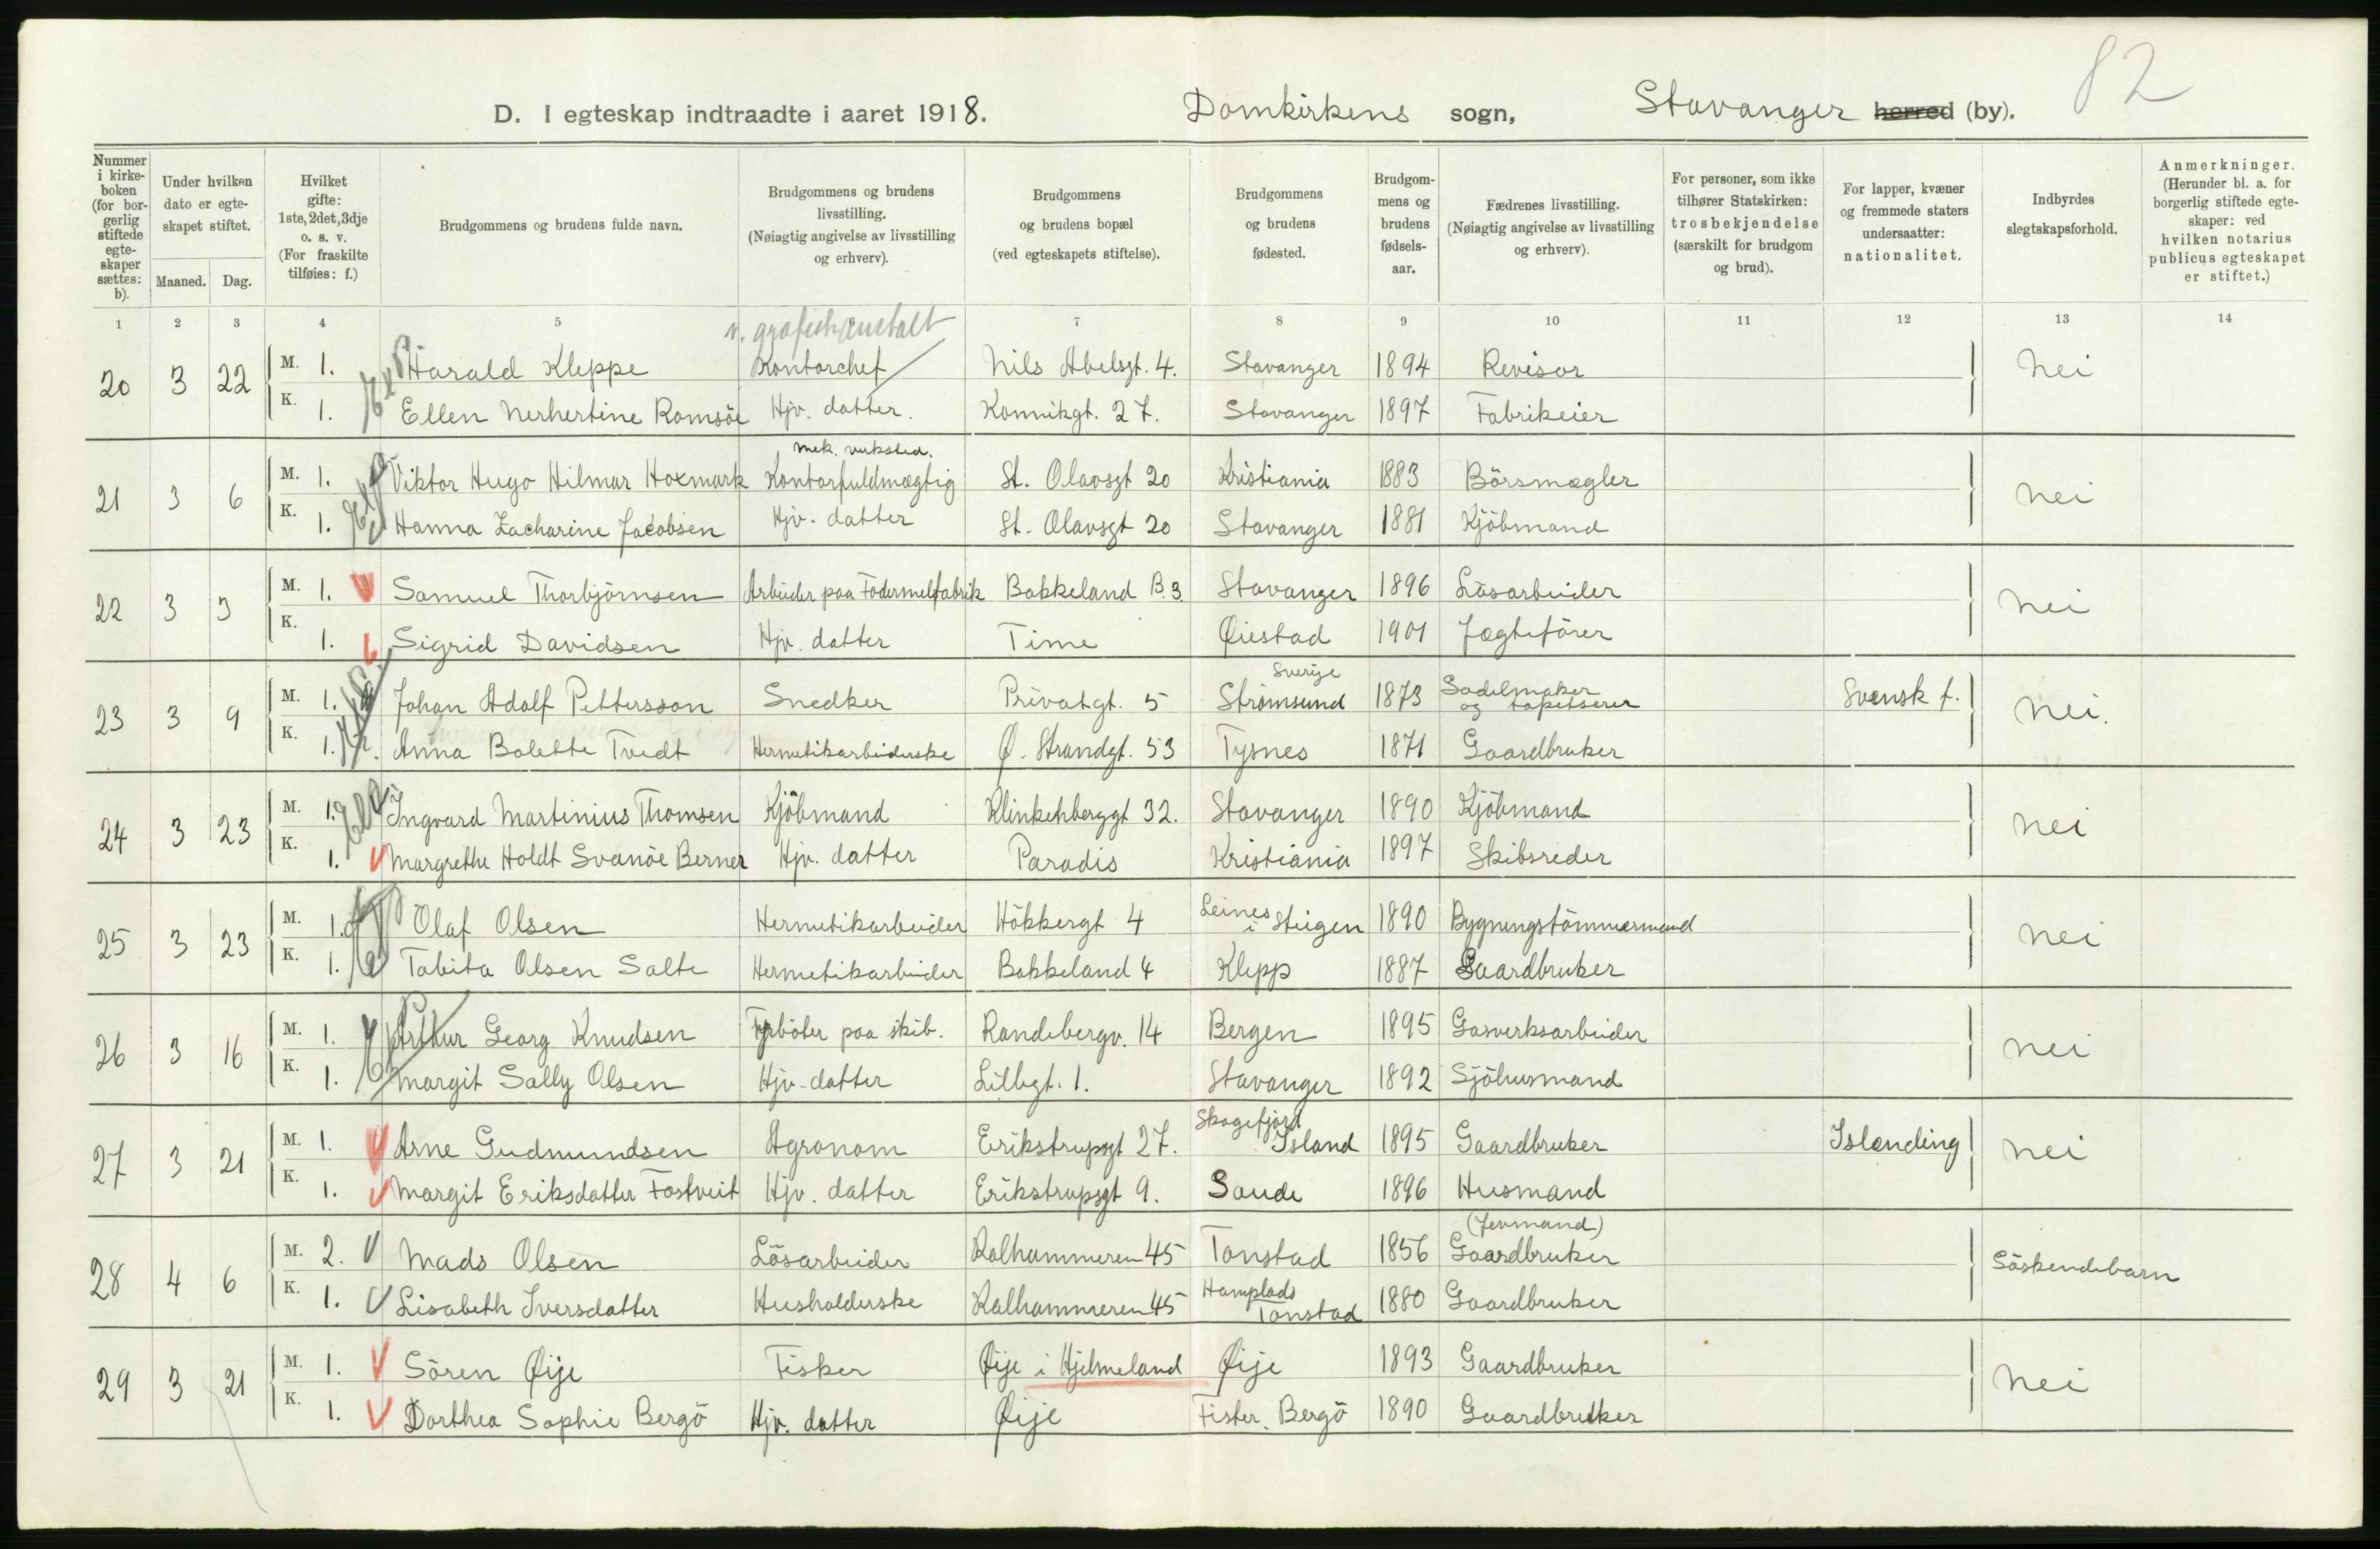 82
D. I egteskap indtraadte i aaret 1918. Domkirkens sogn, Stavanger herred (by).
Nummer i kirkeboken (for borgerlig stiftede egteskaper sættes: b). Under hvilken dato er egteskapet stiftet. Maaned. Dag. Hvilket gifte: 1ste, 2det, 3dje o. s. v. (For fraskilte tilføies: f.) Brudgommens og brudens fulde navn. Brudgommens og brudens livsstilling. (Nøiagtig angivelse av livsstilling og erhverv). Brudgommens og brudens bopæl (ved egteskapets stiftelse). Brudgommens og brudens fødested. Brudgommens og brudens fødselsaar. Fædrenes livsstilling. (Nøiagtig angivelse av livsstilling og erhverv). For personer, som ikke tilhører Statskirken: trosbekjendelse (særskilt for brudgom og brud). For lapper, kvæner og fremmede staters undersaatter: nationalitet. Indbyrdes slegtskapsforhold. Anmerkninger. (Herunder bl. a. for borgerlig stiftede egteskaper: ved hvilken notarius publicus egteskapet er stiftet.)
1 2 3 4 5 7 8 9 10 11 12 13 14
20 3 22 M. 1. Harald Kleppe Kontorchef Nils Abelsgt. 4. Stavanger 1894 Revisor Nei
K. 1. Ellen Nerhertine Romsöe Hjv. datter. Konnikgt. 27. Stavanger 1897 Fabrikeier
mek. verksted.
21 3 6 M. 1. Viktor Hugo Hilmar Hoxmark Kontorfuldmægtig St. Olavsgt 20 Kristiania 1883 Börsmægler nei
K. 1. Hanna Zacharine Jacobsen Hjv. datter St. Olavsgt 20 Stavanger 1881 Kjöbmand
22 3 3 M. 1. Samuel Thorbjörnsen Arbeider paa Fodermelfabrik Bakkeland B. 3. Stavanger 1896 Lösarbeider nei
K. 1. Sigrid Davidsen Hjv. datter Time Øiestad 1901 Jægtefører
Sverige
23 3 9 M. 1. Johan Adolf Pettersson Snedker Privatgt. 5 Strömsund 1873 Sadelmaker og tapetserer Svensk f. nei.
K. 1. Anna Bolette Tvedt Hermetikarbeiderske Ø. Strandgt. 53 Tysnes 1871 Gaardbruker
24 3 23 M. 1. Ingvard Martinius Thomsen Kjöbmand Klinkenberggt 32. Stavanger 1890 Kjöbmand nei
K. 1. Margrethe Holdt Svanöe Berner Hjv. datter Paradis Kristiania 1897 Skibsreder
25 3 23 M. 1. Olaf Olsen Hermetikarbeider Hökkergt 4 Leines i Steigen 1890 Bygningstömmermand nei
K. 1. Tabita Olsen Salte Hermetikarbeider Bakkeland 4 Klepp 1887 Gaardbruker
26 3 16 M. 1. Arthur Georg Knudsen Fyrböter paa skib. Randebergv. 14 Bergen 1895 Gasverksarbeider nei
K. 1. Margit Sally Olsen Hjv. datter Lillegt. 1. Stavanger 1892 Sjöhusmand
27 3 21 M. 1. Arne Gudmundsen Agronom Erikstrupsgt 27. Skagefjord Island 1895 Gaardbruker Islending nei
K. 1. Margit Eriksdatter Fostveit Hjv. datter Erikstrupsgt 9. Saude 1896 Husmand
28 4 6 M. 2. Mads Olsen Lösarbeider Kalhammeren 45 Tonstad 1856 Gaardbruker Söskendebarn
K. 1. Lisabeth Iversdatter Husholderske Kalhammeren 45 Tonstad 1880 Gaardbruker
29 3 21 M. 1. Sören Øije Fisker Øije i Hjelmeland Øije 1893 Gaardbruker Nei
K. 1. Dorthea Sophie Bergö Hjv. datter Øije Fister. Bergö 1890 Gaardbruker